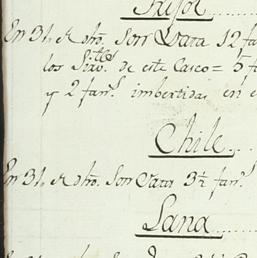 Frijol
En 31, de dho. Son Data 12 fa
los Sirv.tes de este Casco = 5 f
y 2 fan.s imbertidas en e
Chile
En 31, de dho. Son Data 3½ fan.s
Lana